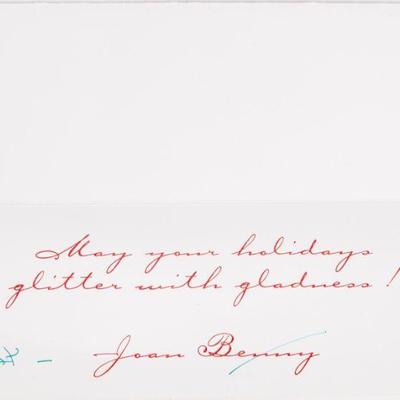 May your holidays
glitter with gladness!
— Joan Benny